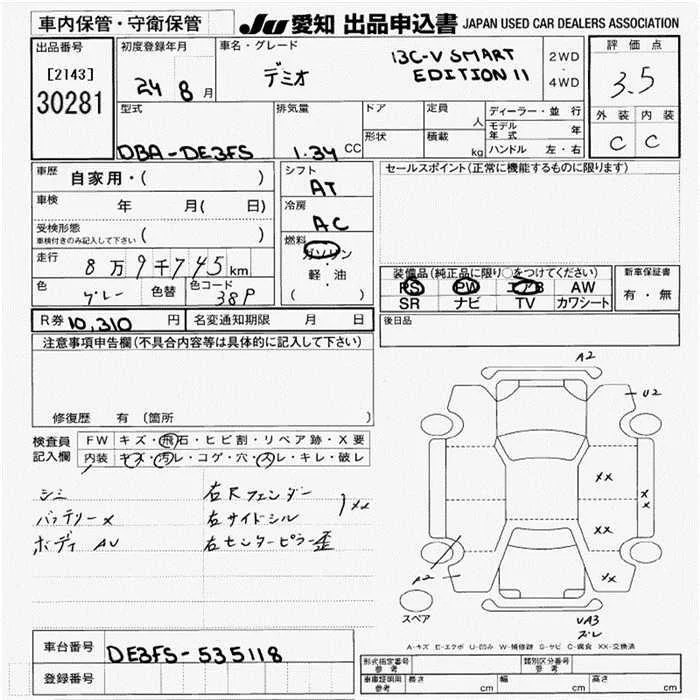 車内保管・守衛保管
JU 愛知 出品申込書 JAPAN USED CAR DEALERS ASSOCIATION
出品番号
[2143]
30281
初度登録年月
24 8 月
車名・グレード
デミオ
13C-V SMART
EDITION II
2WD
・
4WD
評価点
3.5
外装 内装
C C
型式
DBA-DE3FS
排気量
1.34 CC
ドア
形状
定員
人
積載
kg
ディーラー・並 行
モデル年式 年
ハンドル 左・右
車歴
自家用・( )
車検
年 月( 日)
受検形態
車検付きのみ記入して下さい ( )
走行
8万9千745km
色
グレー
色替
色コード
38P
シフト
AT
冷房
AC
燃料
ガソリン
・
軽・油
( )
セールスポイント(正常に機能するものに限ります)
装備品(純正品に限り○をつけてください)
PS PW エアB AW
SR ナビ TV カワシート
新車保証書
有・無
R券 10,310 円 名変通知期限 月 日
後日品
注意事項申告欄(不具合内容等は具体的に記入して下さい)
修復歴 有 (箇所 )
検査員
記入欄
FW キズ・飛石・ヒビ割・リペア跡・X要
内装 キズ・汚レ・コゲ・穴・スレ・キレ・破レ
シミ 右Fフェンダー
バッテリーX 右サイドシル
XX
ボディ AU 右センターピラー歪
A2
U2
XX
XX
XX
XX
A2
UA3
ズレ
スペア
A-キズ E-エクボ U-凹み W-補修跡 S-サビ C-腐食 XX-交換済
車台番号
DE3FS-535118
登録番号
形式指定番号
参考
類別区分番号
参考
車庫証明用
参考
長さ cm 幅 cm 高さ cm